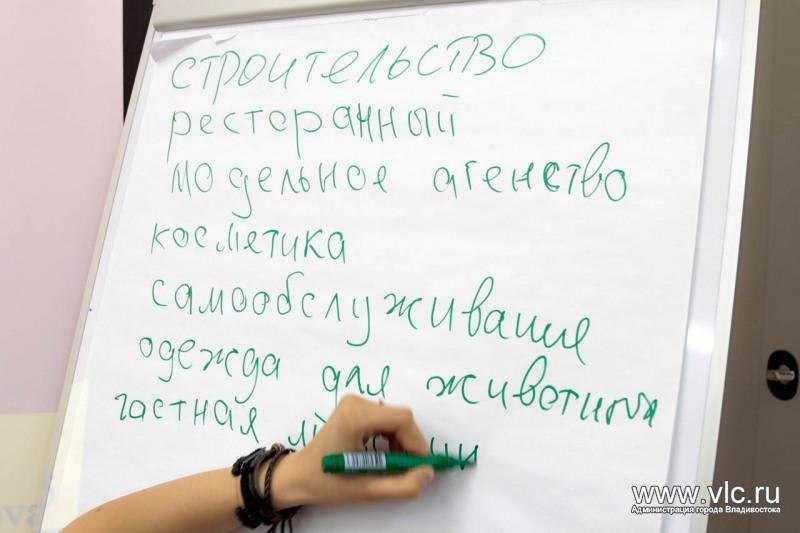 строительство
ресторанный
модельное агенство
косметика
самообслуживание
одежда для животных
частная
www.vlc.ru
Администрация города Владивостока